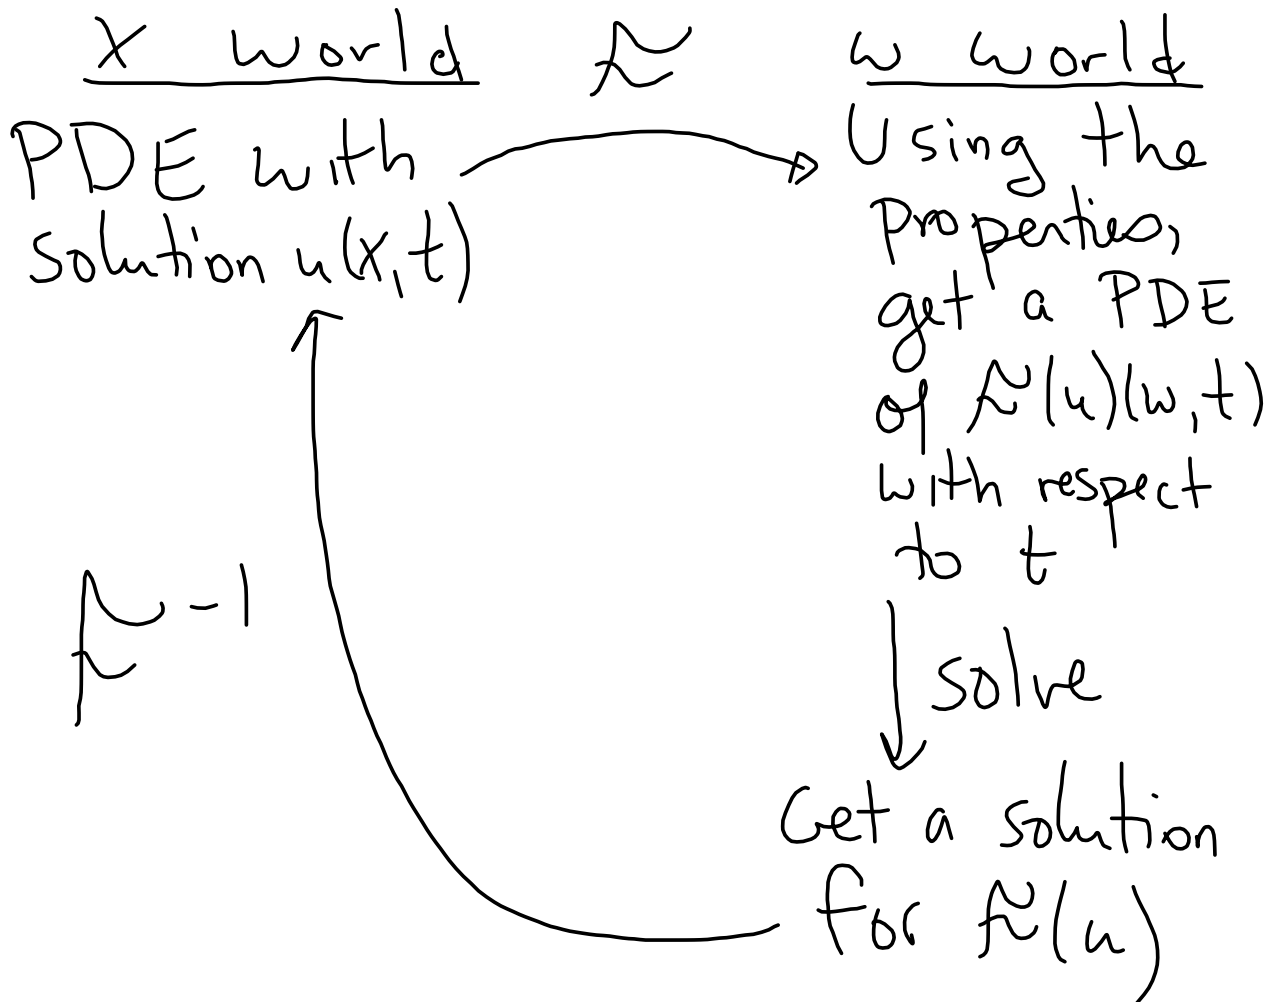 x world
ℱ
w world
PDE with
solution u(x,t)
Using the
properties,
get a PDE
of ℱ(u)(w,t)
with respect
to t
solve
Get a solution
for ℱ(u)
ℱ⁻¹